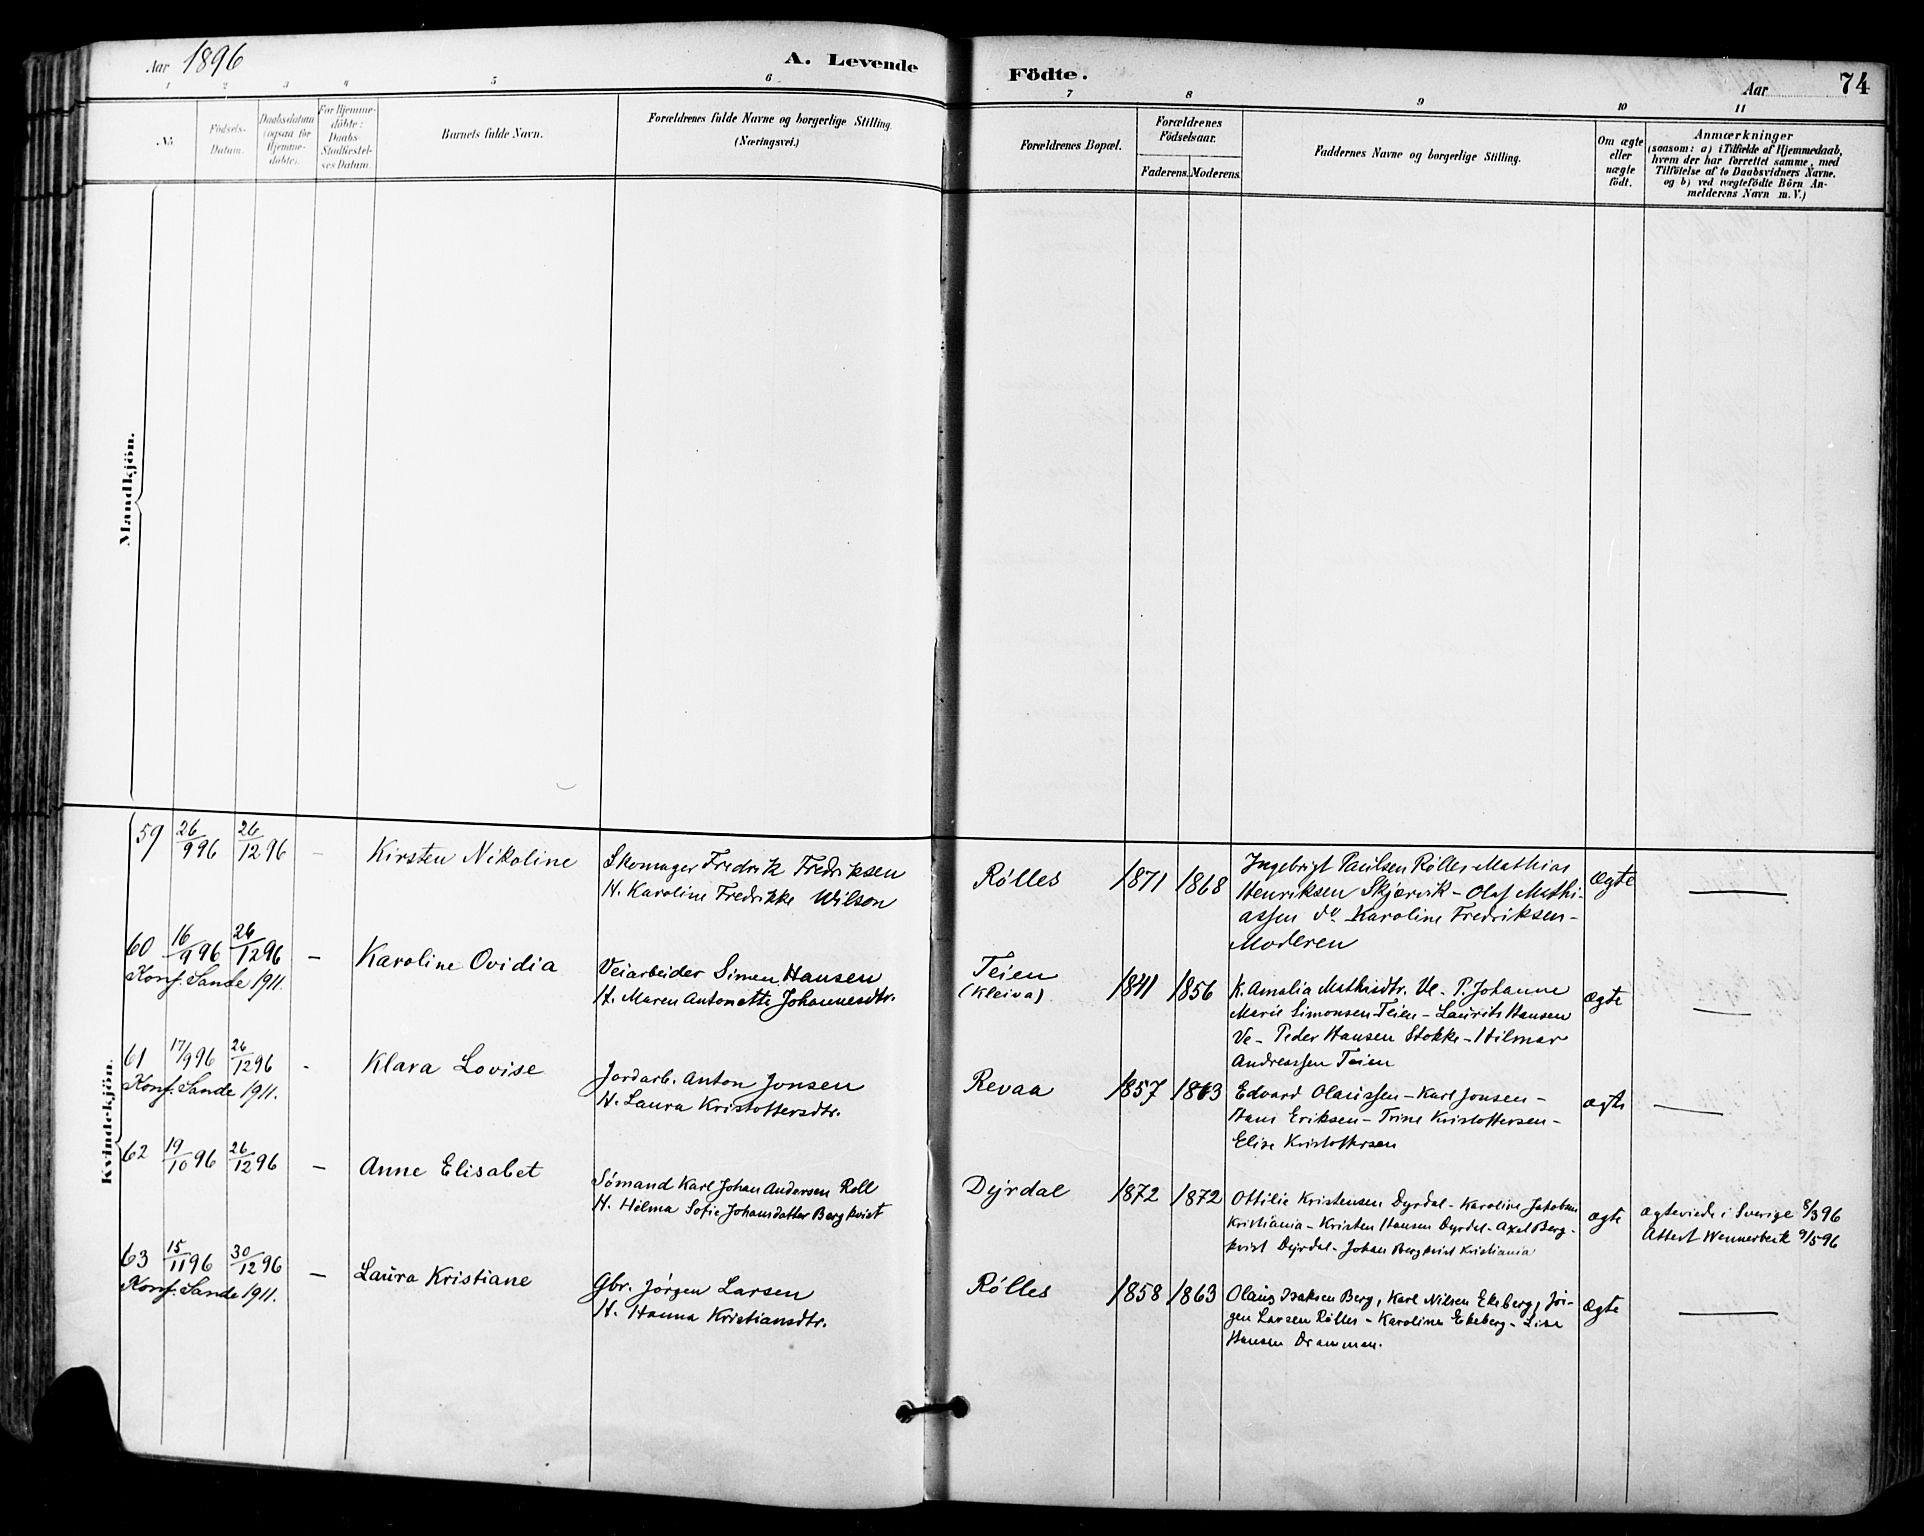 Aar 1896
A. Levende
Födte.
Aar
74
1 2 3 4 5 6 7 8 9 10 11
No
Födsels-
Datum.
Daabsdatum
(ogsaa for
Hjemme-
døbte).
For Hjemme-
döbte:
Daabs-
Stadfæstel-
ses Datum.
Barnets fulde Navn.
Forældrenes fulde Navne og borgerlige Stilling.
(Næringsvei.)
Forældrenes Bopæl.
Forældrenes
Födselsaar.
Faderens. Moderens.
Faddernes Navne og borgerlige Stilling.
Om ægte
eller
uægte
födt.
Anmærkninger
(saasom: a) i Tilfælde af Hjemmedaab,
hvem der har forrettet samme, med
Tilföielse af to Daabsvidners Navne.
og b) ved uægtefödte Börn An-
melderens Navn m. V.)
Mandkjön.
Kvindekjön.
59 26/9 96 26/12 96 – Kirsten Nikoline
Skomager Fredrik Fredriksen
H. Karoline Fredrikke Wilson
Rølles 1871 1868
Ingebrigt Paulsen Rølles Mathias
Henriksen Skjærvik – Olaf Mathi-
assen do Karoline Fredriksen –
Moderen
Ægte
60 16/9 96 26/12 96 – Karoline Ovidia
Konf. Sande 1911.
Veiarbeider Simen Hansen
H. Maren Antonette Johannesdtr.
Teien
(Kleiva)
1841 1856
K. Amalia Mathisdtr. Ve – P. Johanne
Marie Simonsen Teien – Laurits Hansen
Ve – Peder Hansen Stokke – Hilmar
Andreassen Teien
ægte
61 17/9 96 26/12 96 - Klara Lovise
Konf. Sande 1911.
Jordarb. Anton Jonsen
H. Laura Kristoffersdtr.
Revaa 1857 1863
Edvard Olaussen – Karl Jonsen –
Hans Eriksen – Trine Kristoffersen –
Elise Kristoffersen
ægte
62 19/10 96 26/12 96 – Anne Elisabet
Sømand Karl Johan Andersen Roll
H. Hilma Sofie Johansdatter Bergkvist
Dyrdal 1872 1872
Ottilie Kristensen Dyrdal – Karoline Jakobsen
Kristiania – Kristen Hansen Dyrdal – Axel Berg-
kvist Dyrdal – Johan Bergkvist Kristiania
ægte
ægteviede i Sverige 8/3 96
Attest Wennerbeck 9/5 96
63 15/11 96 30/12 96 – Laura Kristiane
Konf. Sande 1911.
Gbr. Jørgen Larsen
H. Hanna Kristiansdtr.
Rølles 1858 1863
Olaus Isaksen Berg, Karl Nilsen Ekeberg, Jør-
gen Larsen Rølles – Karoline Ekeberg – Lise
Hansen Drammen.
Ægte